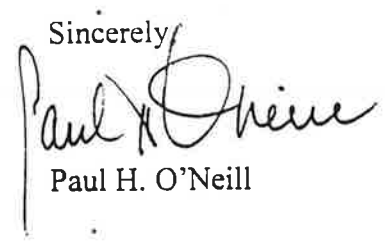 Sincerely,
Paul H O'Neill
Paul H. O'Neill